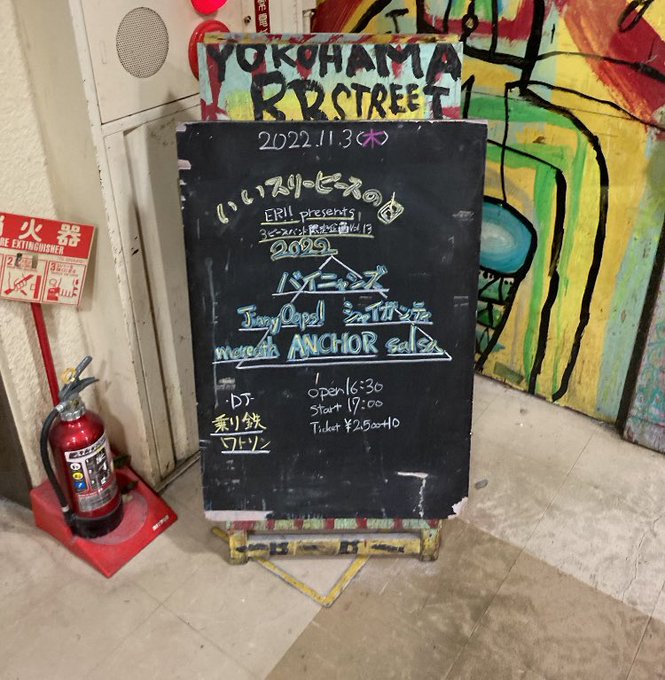 YOKOHAMA
B.B.STREET
2022.11.3(木)
いいスリーピースの日
ERII presents
3ピースバンド限定企画 Vol.13
2022
バイニャンズ
Jimmy Oops! シャイガンティ
mereath ANCHOR salsa
open 16:30
・DJ・
start 17:00
乗り鉄
Ticket ¥2,500+1D
ワトリン
消火器
FIRE EXTINGUISHER